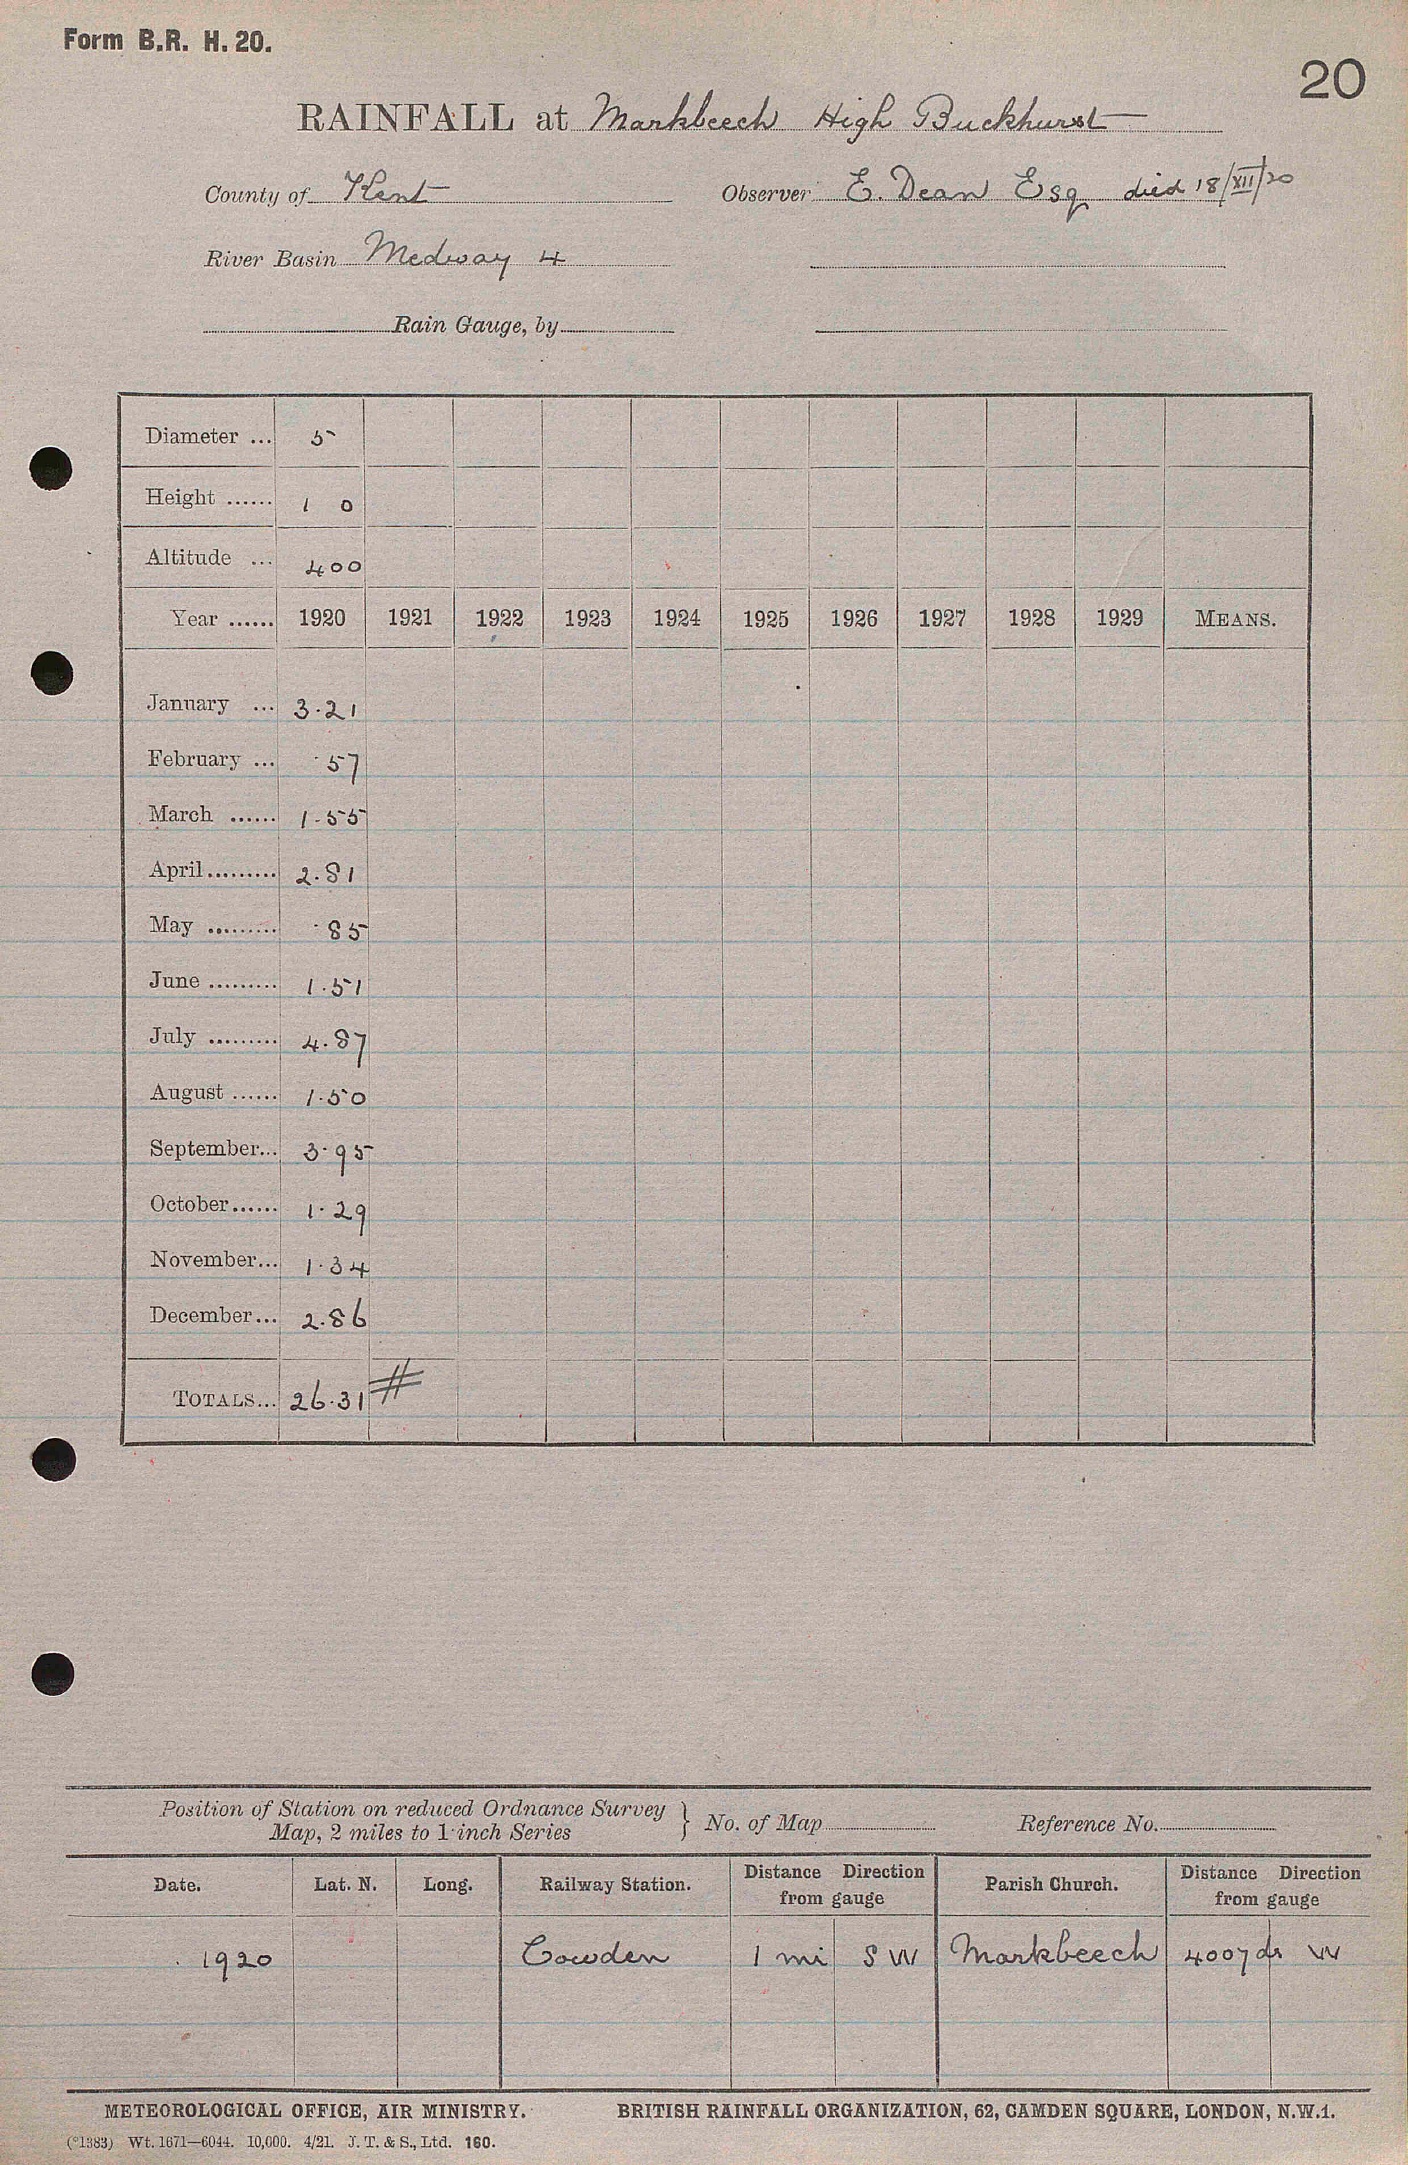 Form B.R. H. 20.
20
RAINFALL at Markbeech High Buckhurst
County of Kent Observer E. Dean Esq died 18/XII/20
River Basin Medway 4
Rain Gauge, by
Diameter ... 5
Height ...... 1 0
Altitude ... 400
Year ...... 1920 1921 1922 1923 1924 1925 1926 1927 1928 1929 MEANS.
January ... 3.21
February ... .57
March ...... 1.55
April ......... 2.81
May ......... .85
June ......... 1.51
July ......... 4.87
August ...... 1.50
September... 3.95
October...... 1.29
November... 1.34
December... 2.86
TOTALS... 26.31 #
Position of Station on reduced Ordnance Survey
Map, 2 miles to 1 inch Series } No. of Map Reference No.
Date. Lat. N. Long. Railway Station. Distance Direction from gauge Parish Church. Distance Direction from gauge
1920 Cowden 1 mi S W Markbeech 400 yds W
METEOROLOGICAL OFFICE, AIR MINISTRY. BRITISH RAINFALL ORGANIZATION, 62, CAMDEN SQUARE, LONDON, N.W.1.
(*1383) Wt. 1671—6044. 10,000. 4/21. J. T. & S., Ltd. 160.